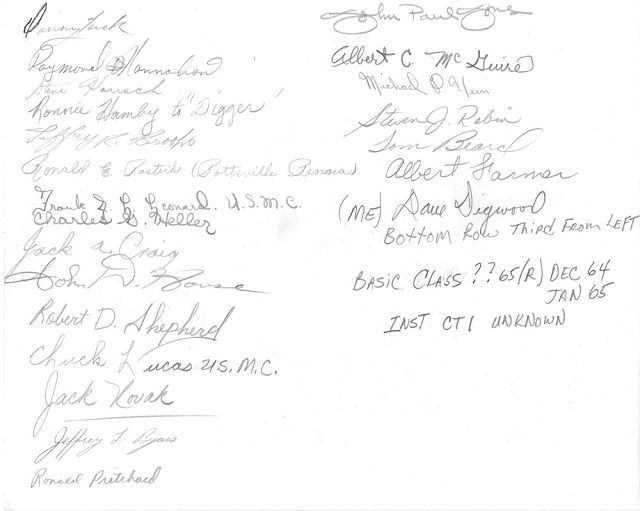 Danny Tuck
Raymond Hannahan
Gene Hausch
Ronnie Hamby to "Digger"
Jeffrey R.
Ronald E. (Potteville Penna)
Frank L. Leonard. U.S.M.C.
Charles G. Heller
Jack A. Craig
John D. House
Robert D. Shepherd
Chuck Lucas U.S.M.C.
Jack Novak
Jeffrey L. Byars
Ronald Pritchard
John Paul Jones
Albert C. McGuire
Michael P. Hein
Steven J. Rabin
Tom Beard
Albert Farmer
(ME) Dave Digwood
BOTTOM ROW THIRD FROM LEFT
BASIC CLASS ?? 65(R) DEC 64
JAN 65
INST CT1 UNKNOWN